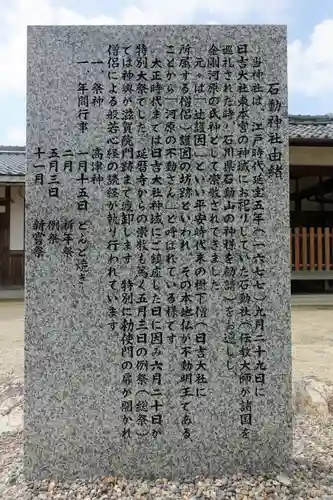 石動神社由緒
当神社は、江戸時代延宝五年(一六七七)九月二十九日に
日吉大社東本宮の神域にお祀りしていた石動社(伝教大師が諸国を
巡礼された時、石川県石動山の神様を勧請)をお遷しし
金剛河原の氏神として崇敬されてきました。
元々は「辻護因」といい平安時代末の樹下僧(日吉大社に
所属する僧侶)護因の坊跡といわれ、その本地仏が不動明王である
ことから「河原の不動さん」と呼ばれている様です。
大正時代までは日吉大社神域にご鎮座した日に因み六月二十日が
特別大祭でした。延暦寺からの崇敬も篤く五月三日の例祭(総祭)
では神輿が滋賀院門跡まで渡御します。特別に勅使門の扉が開かれ
僧侶による般若心経の読経が執り行われています。
一、祭神 高津神
一、年間行事 一月十五日 どんど焼き
二月 祈年祭
五月三日 例祭
十一月 新嘗祭